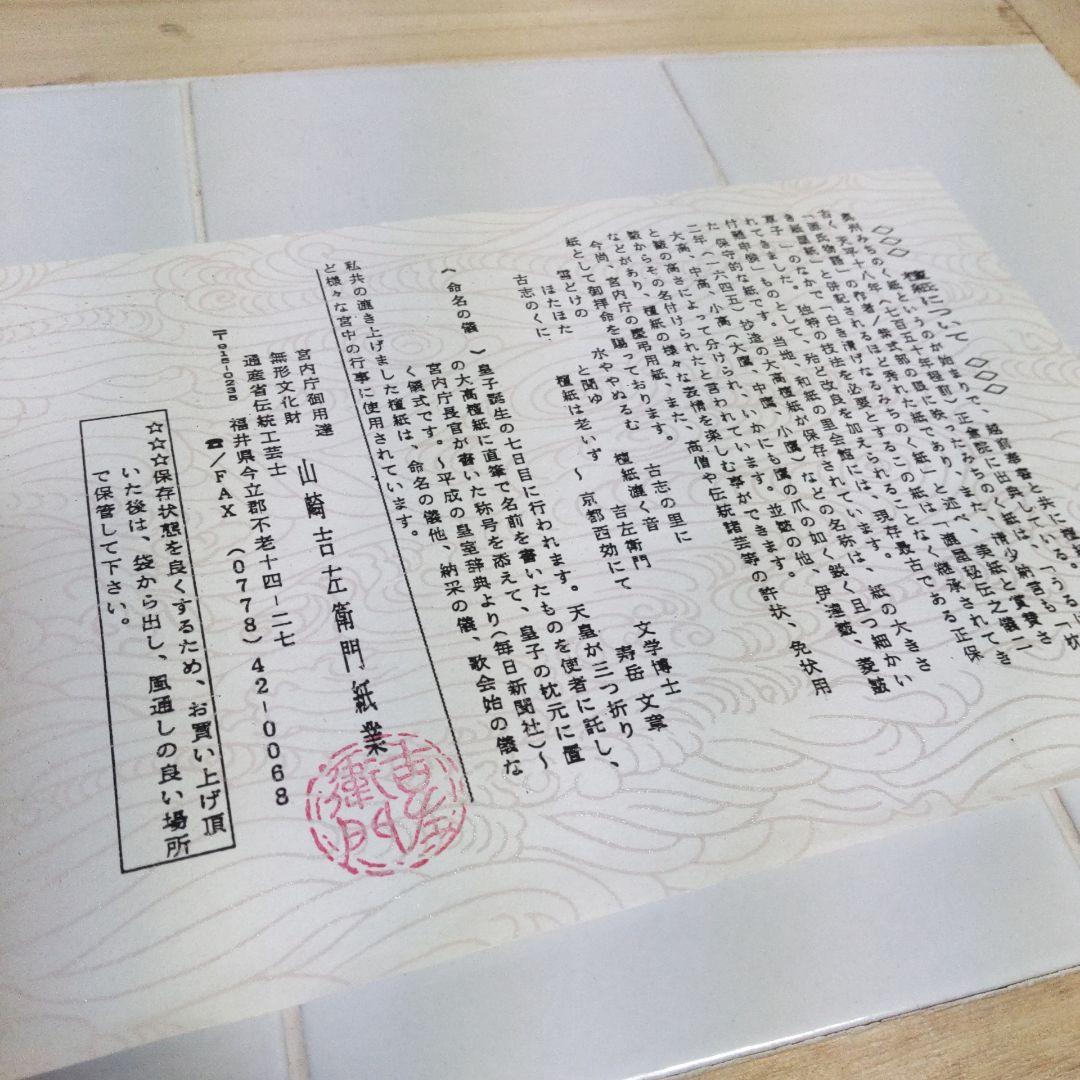 ◇◇◇ 檀紙について ◇◇◇
奥州みちのく紙というのが始まりで、越前奉書と共に
(七百五十年程前)正倉院に出典している
天平十八年
「源氏物語」の作者/紫式部の眼に映ったみちのく紙は、清少納言も「枕
草子」
古く
「白き清げなるみちのく紙」と述べ、また、美紙と賞賛さ
れてきました。
き紙屋紙」のなかで、独特の技法を必要とするこの紙は
ものとして、殆ど改良を加えられることなく継承されてき
た
保守的な紙です。当地、和紙の里会館には、現存最古である正保
二年(一六四五)抄造の大高檀紙が保存されています。紙の大きさ
大高、中高、小高(大鷹、中鷹、小鷹)などの名称は、
と皺の高さによって分けられ、いかにも鷹の爪の如く鋭く且つ細かい
皺からその名付けられたと言われています。並皺の他、伊達皺、菱皺
などがあり、檀紙の様々な表情を楽しむ事ができます。
今尚、宮内庁の慶弔用紙、また、高僧や伝統諸芸等の許状、免状用
紙として御拝命を賜っております。
雪どけの 水ややぬるむ 古志の里に
ほたほた と聞ゆ 檀紙漉く音
古志のくに、 檀紙は老いず 吉左衛門
~ 京都西効にて 文学博士
寿岳 文章
(命名の儀 )皇子誕生の七日目に行われます。天皇が三つ折り
の大高檀紙に直筆で名前を書いたものを使者に託し、
宮内庁長官が書いた称号を添えて、皇子の枕元に置
く儀式です。 ~平成の皇室辞典より(毎日新聞社)~
私共の漉き上げました檀紙は、命名の儀他、納采の儀、歌会始の儀な
ど様々な宮中の行事に使用されています。
宮内庁御用達
無形文化財
通産省伝統工芸士 山崎吉左衛門紙業
〒915-0235 福井県今立郡不老十四-二七
☎/FAX (0778)42-0068
吉左衛門
☆☆☆保存状態を良くするため、お買い上げ頂
いた後は、袋から出し、風通しの良い場所
で保管して下さい。